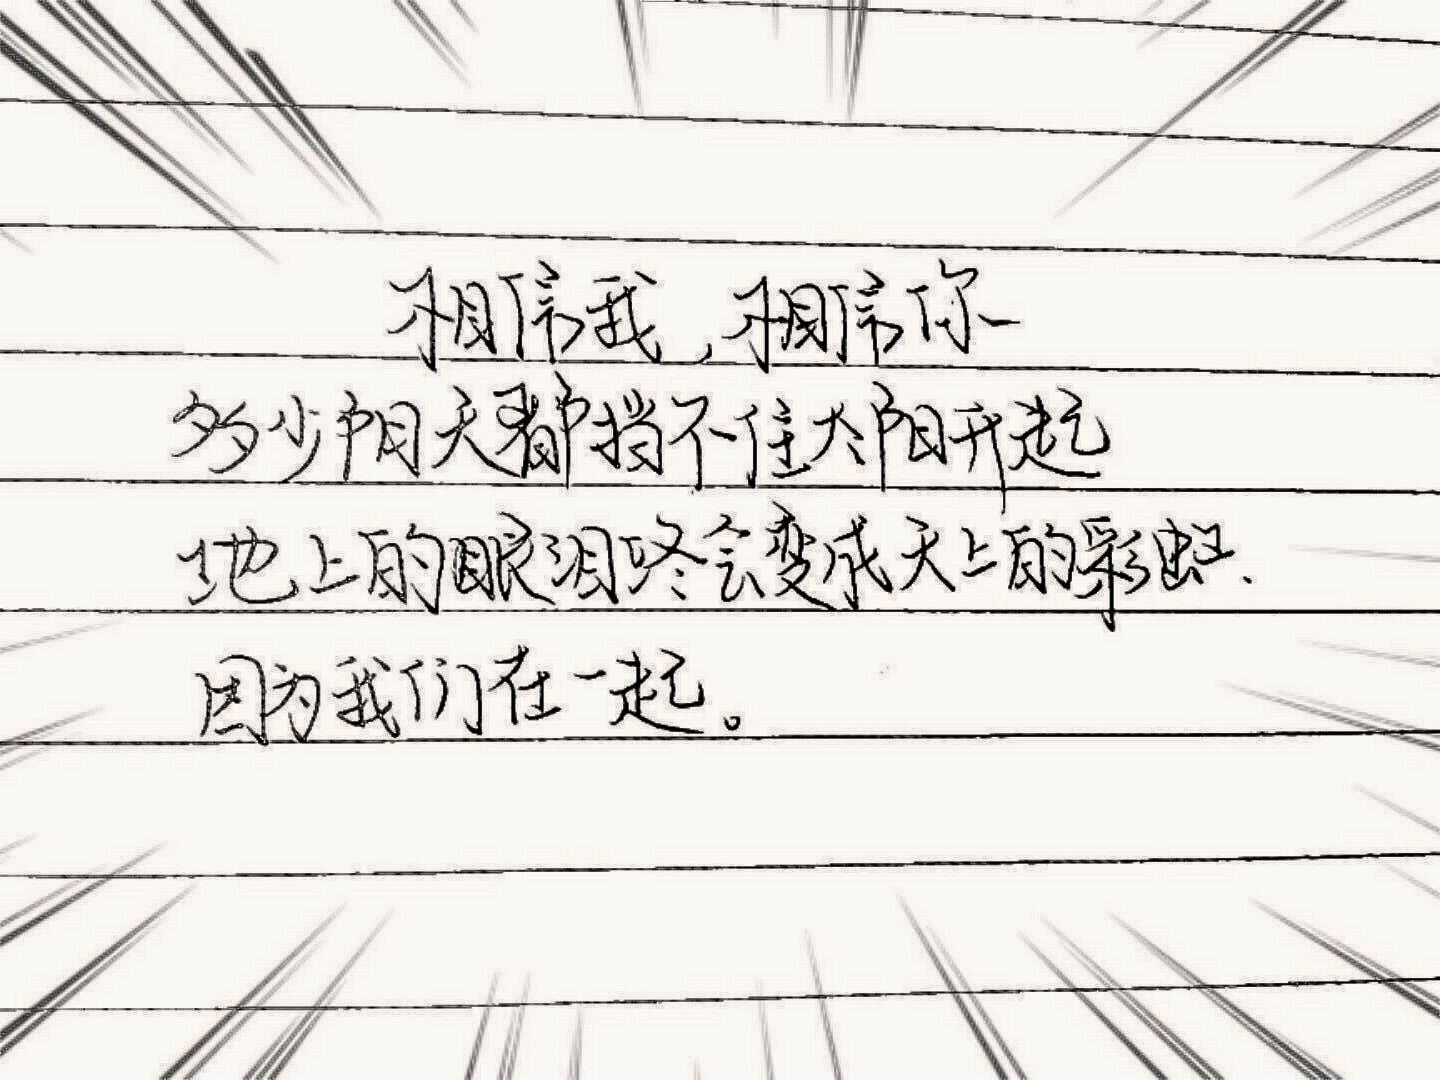 相信我,相信你
多少阴天都挡不住太阳升起
地上的眼泪终会变成天上的彩虹.
因为我们在一起。